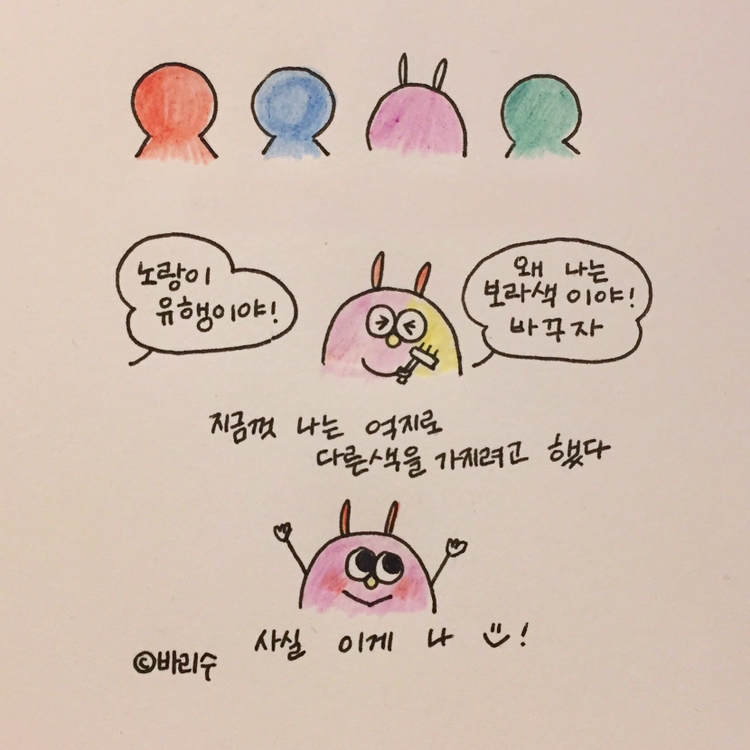 노랑이
유행이야!
왜 나는
보라색이야!
바꾸자
지금껏 나는 억지로
다른색을 가지려고 했다
사실 이게 나 !
©바리수